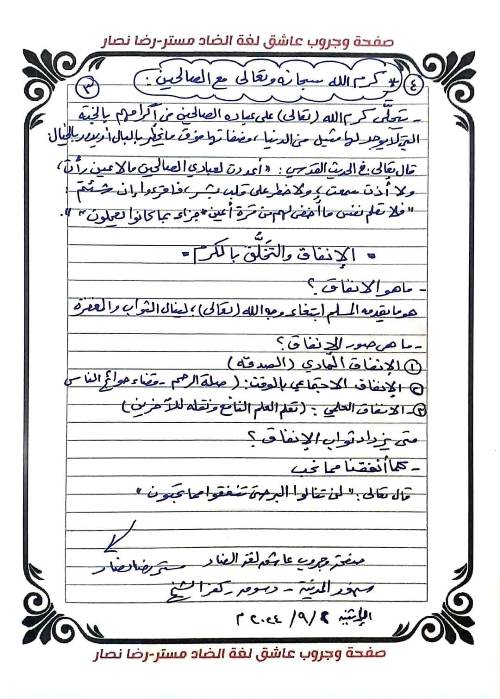 صفحة وجروب عاشق لغة الضاد مستر-رضا نصار
٤ * كرم الله سبحانه وتعالى مع الصالحين : ٣
- يتجلَّى كرم الله (تعالى) على عباده الصالحين من إكرامهم بالجنة
التي لا يوجد لها مثيل من الدنيا، وصفاتها فوق ما يخطر بالبال أو يدور بالخيال
قال تعالى في الحديث القدسي : "أعددت لعبادي الصالحين ما لا عين رأت،
ولا أذن سمعت، ولا خطر على قلب بشر، فاقرءوا إن شئتم
"فلا تعلم نفس ما أخفي لهم من قرة أعين جزاء بما كانوا يعملون".
" الإنفاق والتخلَّق بالكرم "
- ما هو الإنفاق ؟
هو ما يقدمه المسلم ابتغاء وجه الله (تعالى)، لينال الثواب والمغفرة
- ما هي صور الإنفاق ؟
١ الإنفاق المادي (الصدقة)
٢ الإنفاق الاجتماعي بالوقت : (صلة الرحم - قضاء حوائج الناس
٣ - الانفاق العلمي : (تعلم العلم النافع ونقله للآخرين)
متى يزداد ثواب الإنفاق ؟
- كلما أنفقنا مما نحب
قال تعالى : "لن تنالوا البر حتى تنفقوا مما تحبون"
صفحة وجروب عاشق لغة الضاد مستر رضا نصار
سنهور المدينة - دسوق - كفر الشيخ
الإثنين ٢ / ٩ / ٢٠٢٤ م
صفحة وجروب عاشق لغة الضاد مستر-رضا نصار